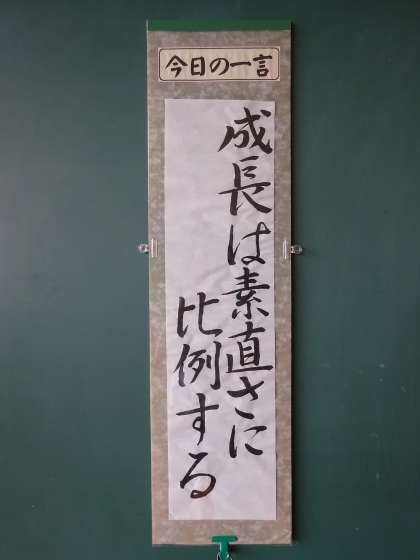 今日の一言
成長は素直さに
比例する